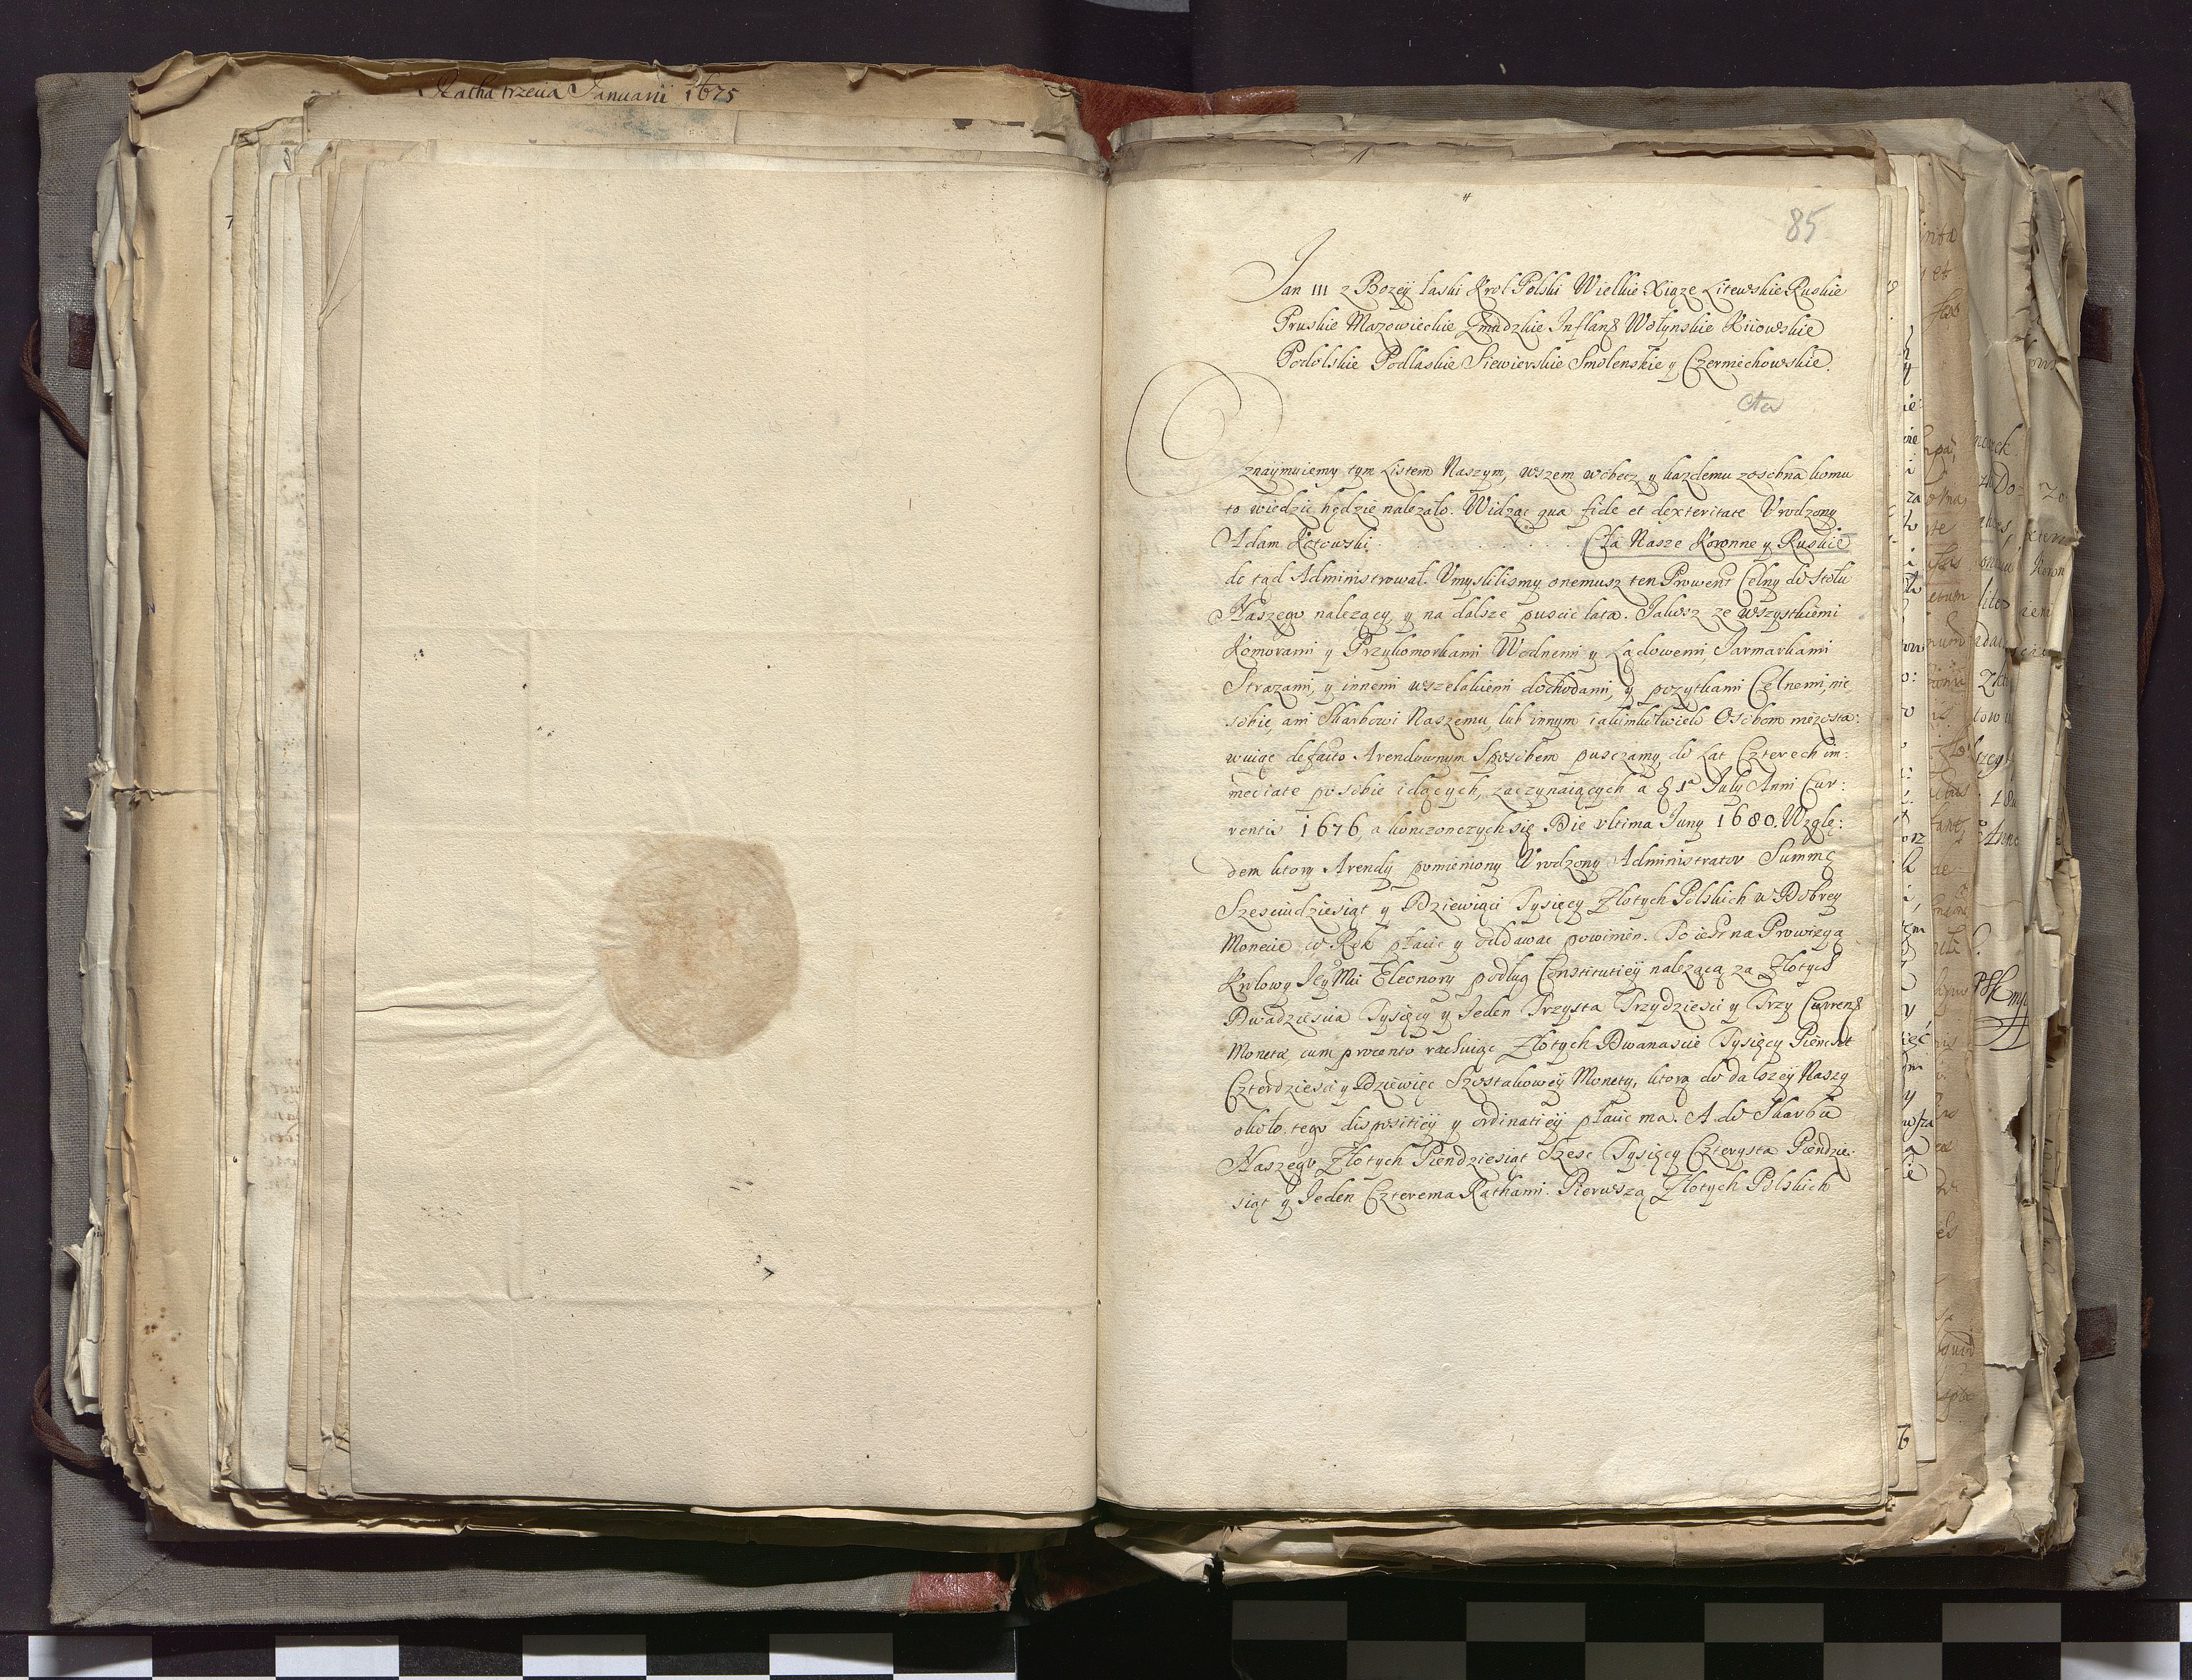 Ratha trzecia Januarii 1675
85
Jan III z Bozey łaski Krol Polski Wielkie Xiąze Litewskie Ruskie
Pruskie Mazowieckie Zmudzkie Inflans Wołynskie Kiiowskie
Podolskie Podlaskie Siewierskie Smolenskie y Czerniechowskie.
Oznaÿmuiemy tym Listem Naszym, wszem wobecz y kazdemu zosobna komu
to wiedzic będzie nalezało. Widząc qua fide et dexteritate Urodzony
Adam Kotowski Cła Nasze Koronne y Ruskie
do tąd Administrował. Umyslilismy onemusz ten Prowent Celny do Stołu
Naszego nalezący, y na dalsze puscic lata. Jakosz ze wszystkiemi
Komorami y Przykomorkami Wodnemi y Lądowemi, Jarmarkami
Strazami, y innemi wszelakiemi dochodami, y pozytkami Celnemi, nic
sobie, ani Skarbowi Naszemu, lub innym iakimkolwiek Osobom niezosta:
wuiąc de facto Arendownym Sposobem pusczamy, do Lat Czterech im:
mediate po sobie idących, zaczynaiących a 1ª July Anni Cur:
rentis 1676 a konczonczych się Die ultima Juny 1680. Wzglę:
dem ktory Arendÿ pomieniony Urodzony Administrator Summę
Szesciudziesiąt y Dziewiąci Tysięcy Złotych Polskich w Dobrey
Monecie co Rok płacic y oddawac powinien. To iest na Prowizyą
Krolowy Jey Mci Eleonory podług Constitutieÿ nalezącą za Złotych
Dwadziescia Tysięcy y Jeden Trzysta Trzydziesci y Trzy Currens
Moneta cum procento rachuiąc Złotych Dwanascie Tysięcy Piencset
Czterdziesci y Dziewięc Szostakoweÿ Monety, ktorą do dalszeÿ Naszy
około tego dispositieÿ y ordinatieÿ płacic ma. A do Skarbu
Naszego Złotych Piendziesiąt Szesc Tysięcy Czterysta Piendzie:
siąt y Jeden Czterema Rathami. Pierwszą Złotych Polskich